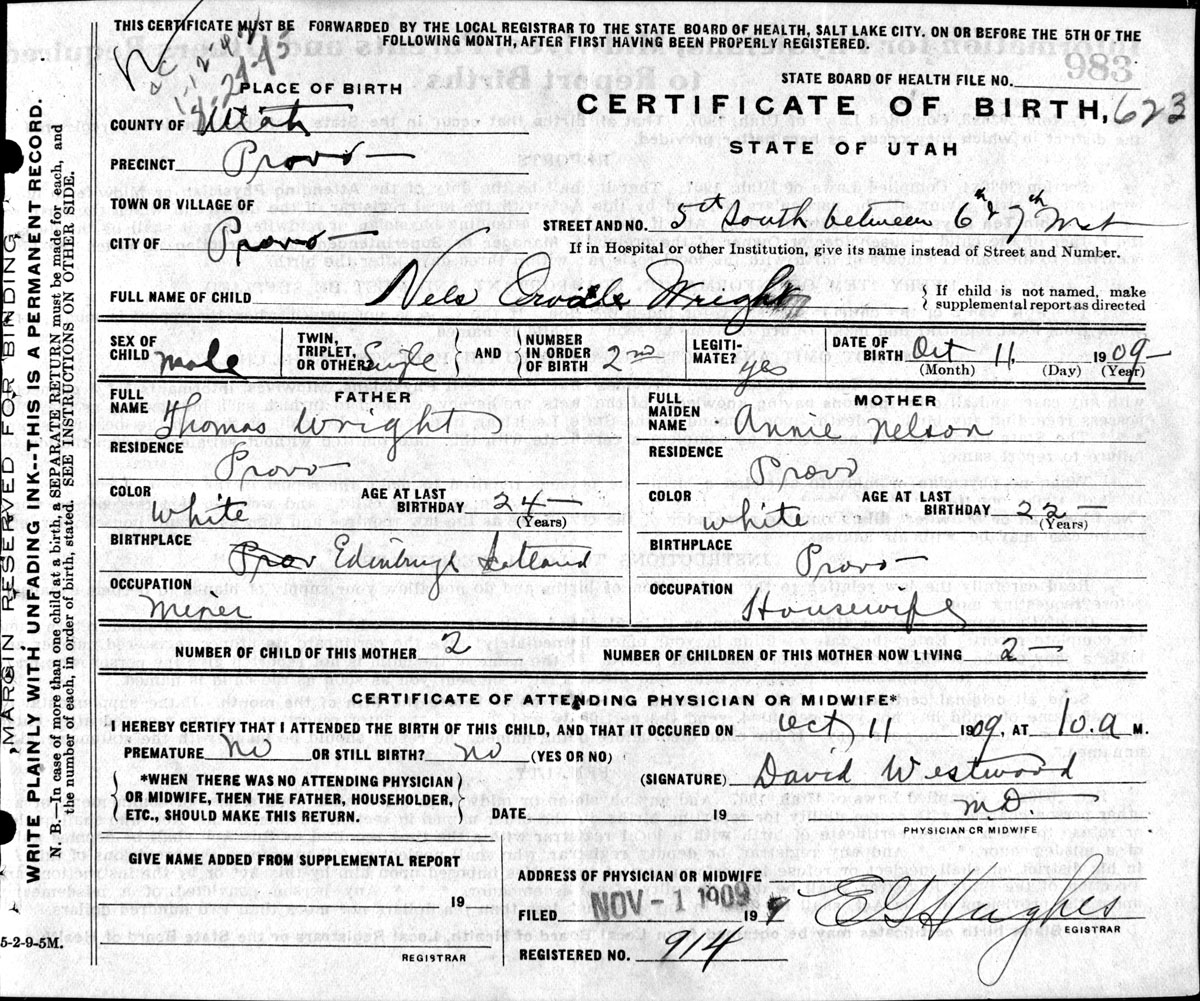 THIS CERTIFICATE MUST BE FORWARDED BY THE LOCAL REGISTRAR TO THE STATE BOARD OF HEALTH, SALT LAKE CITY, ON OR BEFORE THE 5TH OF THE
FOLLOWING MONTH, AFTER FIRST HAVING BEEN PROPERLY REGISTERED.
STATE BOARD OF HEALTH FILE NO.
PLACE OF BIRTH
CERTIFICATE OF BIRTH, 623
STATE OF UTAH
COUNTY OF Utah
PRECINCT Provo
TOWN OR VILLAGE OF
STREET AND NO. 5th South between 6th & 7th
CITY OF Provo
If in Hospital or other Institution, give its name instead of Street and Number.
FULL NAME OF CHILD Nels Wright
If child is not named, make
supplemental report as directed
SEX OF CHILD male
TWIN, TRIPLET, OR OTHER? Single
AND NUMBER IN ORDER OF BIRTH 2nd
LEGITI- MATE? yes
DATE OF BIRTH Oct 11 1909
(Month) (Day) (Year)
FATHER
FULL NAME Thomas Wright
RESIDENCE Provo
COLOR White
AGE AT LAST BIRTHDAY 24 (Years)
BIRTHPLACE Prov Edinburgh Scotland
OCCUPATION Minier
MOTHER
FULL MAIDEN NAME Annie Nelson
RESIDENCE Provo
COLOR White
AGE AT LAST BIRTHDAY 22 (Years)
BIRTHPLACE Provo
OCCUPATION Housewife
NUMBER OF CHILD OF THIS MOTHER 2
NUMBER OF CHILDREN OF THIS MOTHER NOW LIVING 2
CERTIFICATE OF ATTENDING PHYSICIAN OR MIDWIFE*
I HEREBY CERTIFY THAT I ATTENDED THE BIRTH OF THIS CHILD, AND THAT IT OCCURED ON Oct 11 1909, AT 10 a M.
PREMATURE No OR STILL BIRTH? No (YES OR NO)
*WHEN THERE WAS NO ATTENDING PHYSICIAN
OR MIDWIFE, THEN THE FATHER, HOUSEHOLDER,
ETC., SHOULD MAKE THIS RETURN.
(SIGNATURE) David Westwood
MD
DATED 19
PHYSICIAN OR MIDWIFE
GIVE NAME ADDED FROM SUPPLEMENTAL REPORT
19
REGISTRAR
ADDRESS OF PHYSICIAN OR MIDWIFE
FILED NOV - 1 1909 19
Hughes
REGISTRAR
REGISTERED NO. 914
5-2-9-5M.
MARGIN RESERVED FOR BINDING
WRITE PLAINLY WITH UNFADING INK--THIS IS A PERMANENT RECORD.
N. B. In case of more than one child at a birth, a SEPARATE RETURN must be made for each, and
the number of each, in order of birth, stated. SEE INSTRUCTIONS ON OTHER SIDE.